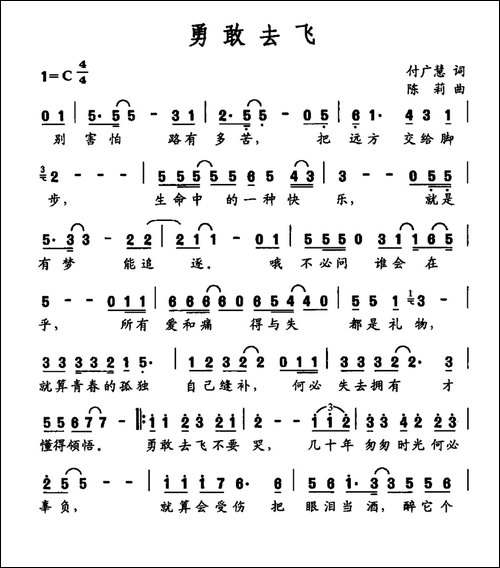 勇敢去飞
1=C 4/4
付广慧 词
陈 莉 曲
0 1 | 5· 5 5 - 3 1 | 2· 5 5 - 0 5 | 6 1· 4 3 1 |
别 害怕 路有 多苦， 把 远方 交给脚
3/2 2 - - - | 5 5 5 5 5 6 5 4 3 | 3 - - 0 5 5 |
步， 生命中 的一种 快 乐， 就是
5· 3 3 - 2 2 | 2 1 1 - 0 1 | 5 5 5 0 3 1 1 6 5 |
有梦 能追 逐。 哦 不必问 谁会 在
5 - - 0 1 1 | 6 6 6 6 0 6 5 4 4 0 | 5 5 1 1/3 - |
乎， 所有 爱和痛 得与失 都是 礼 物，
3 3 3 3 3 2 1 5· | 1 2 3 2 2 0 1 1 | 6 3 3 3 2 2· 3 |
就算青春的孤独 自己缝补， 何必 失去拥有 才
5 5 6 7 7 - - |: 1 1 2 3 2 1 2 - | 1 1 2 3 3 4 2 2 3 |
懂得领悟。 勇敢去飞不要 哭， 几十年 匆匆时光何必
2 5 5 - - | 1 1 1 7 6· 6 | 5 6 5 1· 3 3 5 6 |
辜负， 就算会受伤 把 眼泪当 酒，醉它个